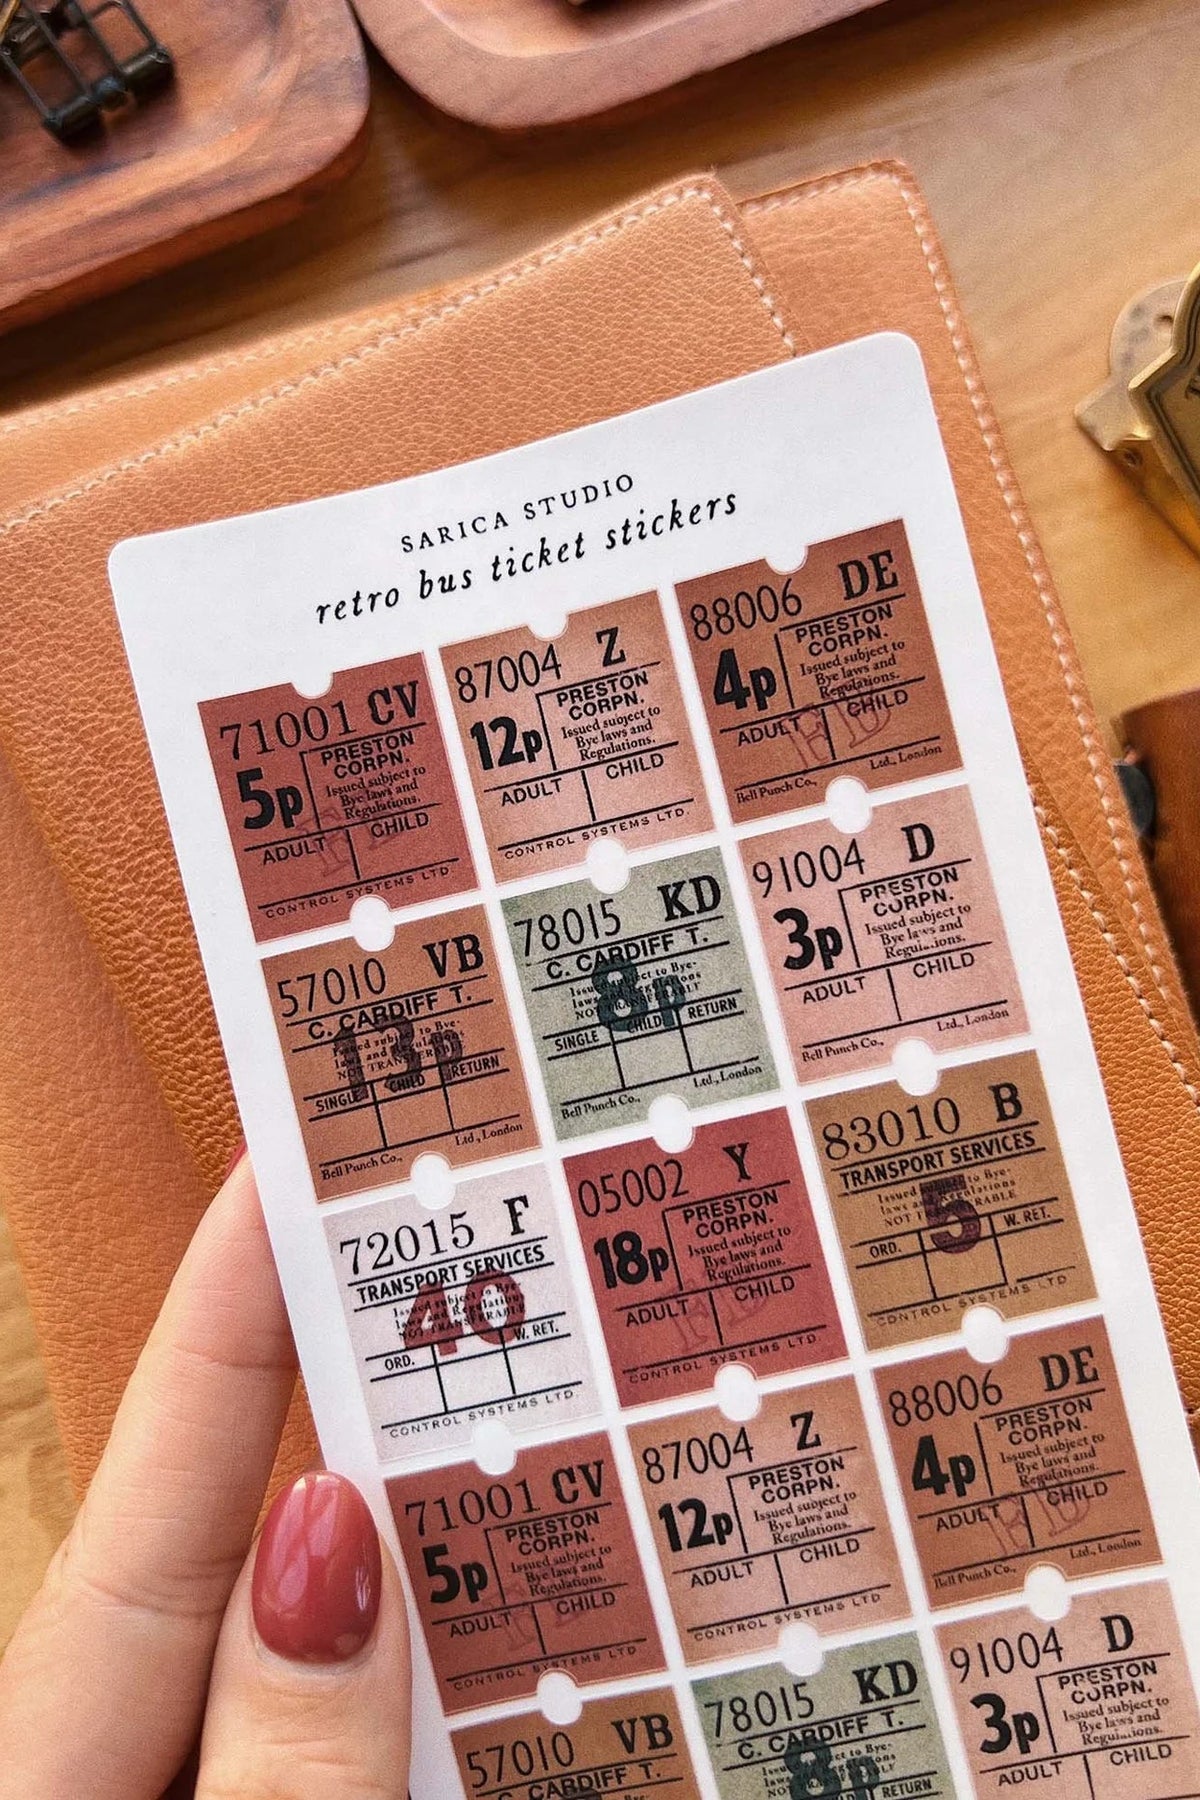 SARICA STUDIO
retro bus ticket stickers
71001 CV
5p
PRESTON
CORPN.
Issued subject to
Bye laws and
Regulations.
ADULT
CHILD
CONTROL SYSTEMS LTD
87004 Z
12p
PRESTON
CORPN.
Issued subject to
Bye laws and
Regulations.
ADULT
CHILD
CONTROL SYSTEMS LTD.
88006 DE
4p
PRESTON
CORPN.
Issued subject to
Bye laws and
Regulations.
ADULT
CHILD
FD
Bell Punch Co., Ltd., London
57010 VB
C. CARDIFF T.
Issued subject to Bye-
laws and Regulations
NOT TRANSFERABLE
13p
SINGLE CHILD RETURN
Bell Punch Co., Ltd., London
78015 KD
C. CARDIFF T.
Issued subject to Bye-
laws and Regulations
NOT TRANSFERABLE
8p
SINGLE CHILD RETURN
Bell Punch Co., Ltd., London
91004 D
3p
PRESTON
CORPN.
Issued subject to
Bye laws and
Regulations.
ADULT
CHILD
Bell Punch Co., Ltd., London
72015 F
TRANSPORT SERVICES
Issued subject to Bye-
laws and Regulations
NOT TRANSFERABLE
40
ORD. W. RET.
CONTROL SYSTEMS LTD.
05002 Y
18p
PRESTON
CORPN.
Issued subject to
Bye laws and
Regulations.
ADULT
CHILD
FD
CONTROL SYSTEMS LTD
83010 B
TRANSPORT SERVICES
Issued subject to Bye-
laws and Regulations
NOT TRANSFERABLE
5
ORD. W. RET.
CONTROL SYSTEMS LTD
71001 CV
5p
PRESTON
CORPN.
Issued subject to
Bye laws and
Regulations.
ADULT
CHILD
CONTROL SYSTEMS LTD
87004 Z
12p
PRESTON
CORPN.
Issued subject to
Bye laws and
Regulations.
ADULT
CHILD
CONTROL SYSTEMS LTD
88006 DE
4p
PRESTON
CORPN.
Issued subject to
Bye laws and
Regulations.
ADULT
CHILD
FD
Bell Punch Co., Ltd., London
57010 VB
C. CARDIFF T.
78015 KD
C. CARDIFF T.
8p
RETURN
91004 D
3p
PRESTON
CORPN.
Issued subject to
Bye laws and
ADULT
CHILD